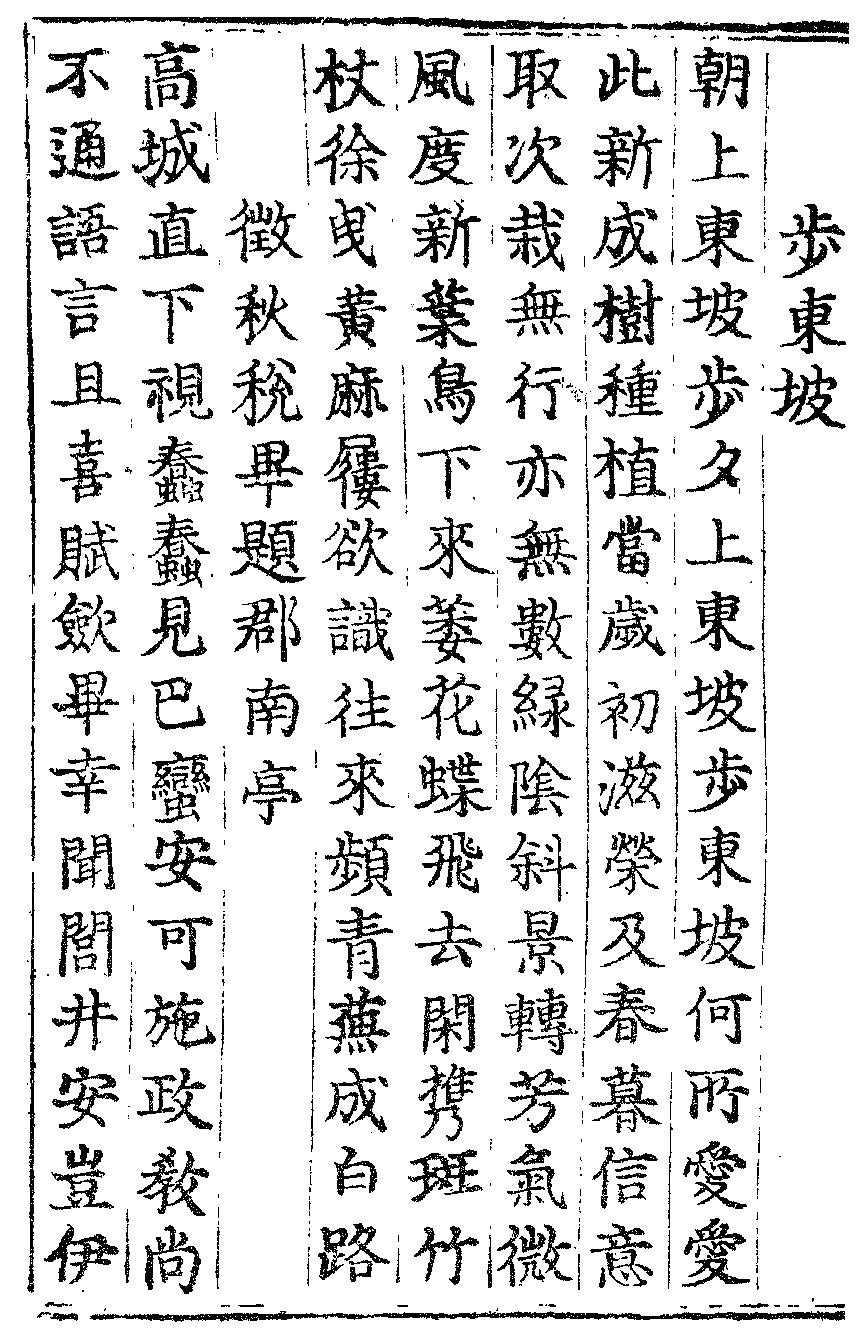 步東坡
朝上東坡步夕上東坡步東坡何所愛愛
此新成樹種植當歲初滋榮及春暮信意
取次栽無行亦無數緑陰斜景轉芳氣微
風度新葉鳥下來萎花蝶飛去閑携斑竹
杖徐曵黃麻屨欲識往來頻青蕪成白路
徵秋稅畢題郡南亭
高城直下視蠢蠢見巴蠻安可施政教尚
不通語言且喜賦斂畢幸聞閭井安豈伊